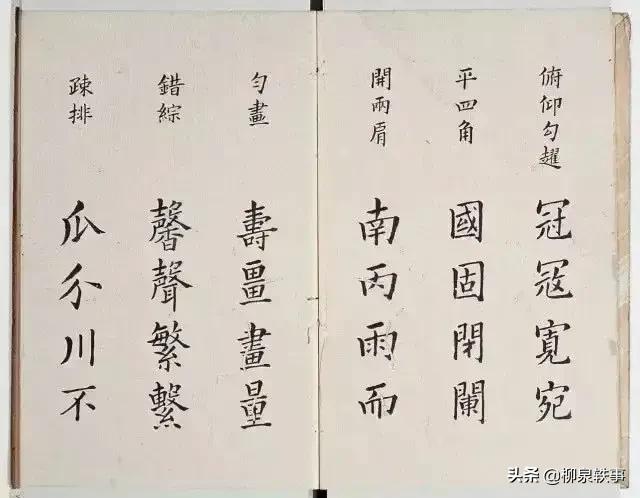 俯仰勾趯
冠冦寬宛
平四角
國固閉闌
開兩肩
南丙雨而
勻畫
壽畺畫量
錯綜
馨聲繁繫
疎排
瓜介川不
头条 @柳泉轶事